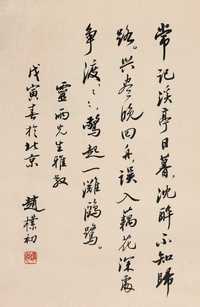 常记溪亭日暮沈醉不知歸
路興尽晚回舟误入藕花深處
争渡〻〻驚起一灘鷗鷺
靈雨先生雅教
戊寅春於北京
趙樸初